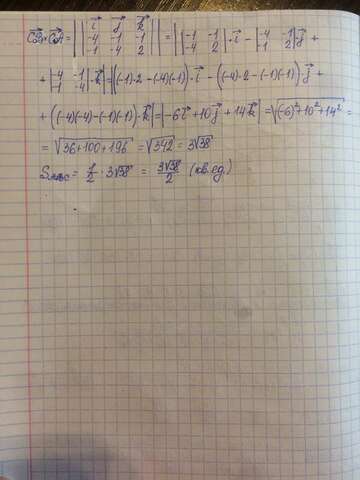 |CB⃗×CA⃗| = || i⃗ j⃗ k⃗ ; -4 -1 -1 ; -1 -4 2 || = || -1 -1 ; -4 2 |·i⃗ - | -4 -1 ; -1 2 | j⃗ +
+ | -4 -1 ; -1 -4 |·k⃗| = |((-1)·2-(-4)(-1))·i⃗ - ((-4)·2-(-1)(-1)) j⃗ +
+ ((-4)(-4)-(-1)(-1))·k⃗| = |-6i⃗+10j⃗+14k⃗| = √(-6)²+10²+14² =
= √36+100+196 = √342 = 3√38
= 1/2 · 3√38 = 3√38/2 (кв.ед.)